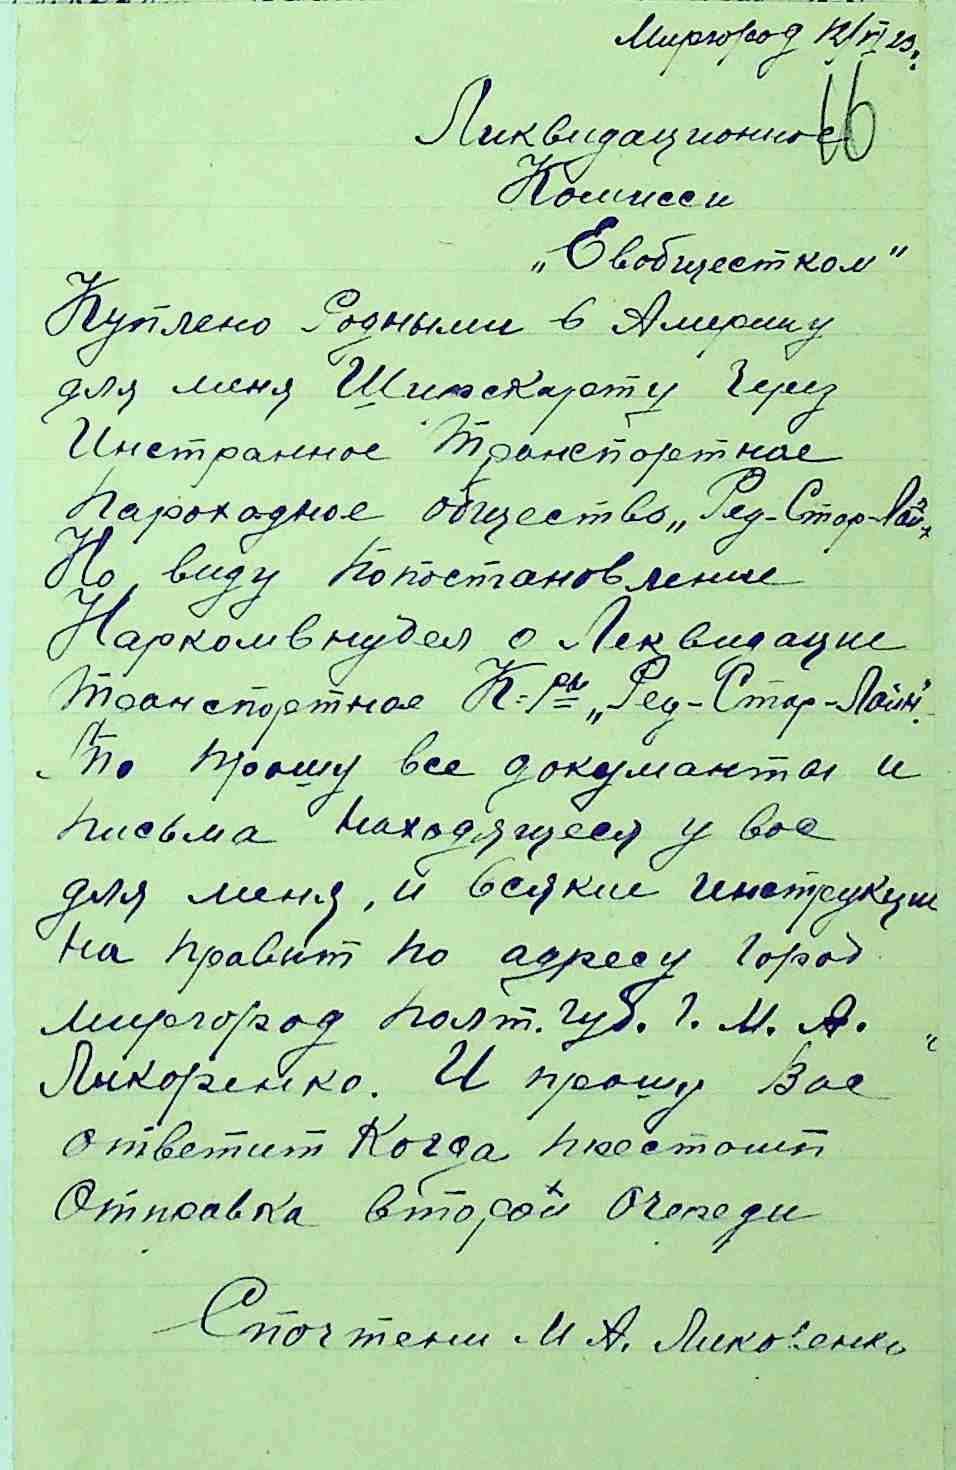 Миргород 12/VI 23.
16
Ликвидационное
Комисси
„Евобщестком"
Куплено Родными в Америку
для меня Шифскарту Через
Инстранное Транспортное
пароходное общество „Ред-Стар-Лайн
Но ввиду попостановление
Наркомвнудел о Леквидацие
Транспортное К-ры „Ред-Стар-Лайн".
То прошу все документы и
письма находящееся у вас
для меня, и всякие инструкции
на правит по адресу город
Миргород полт. губ. г. М. А.
Ликоренко. И прошу Вас
ответит Когда предстоит
Отправка второй очереди
Спочтени М А. Ликоренко